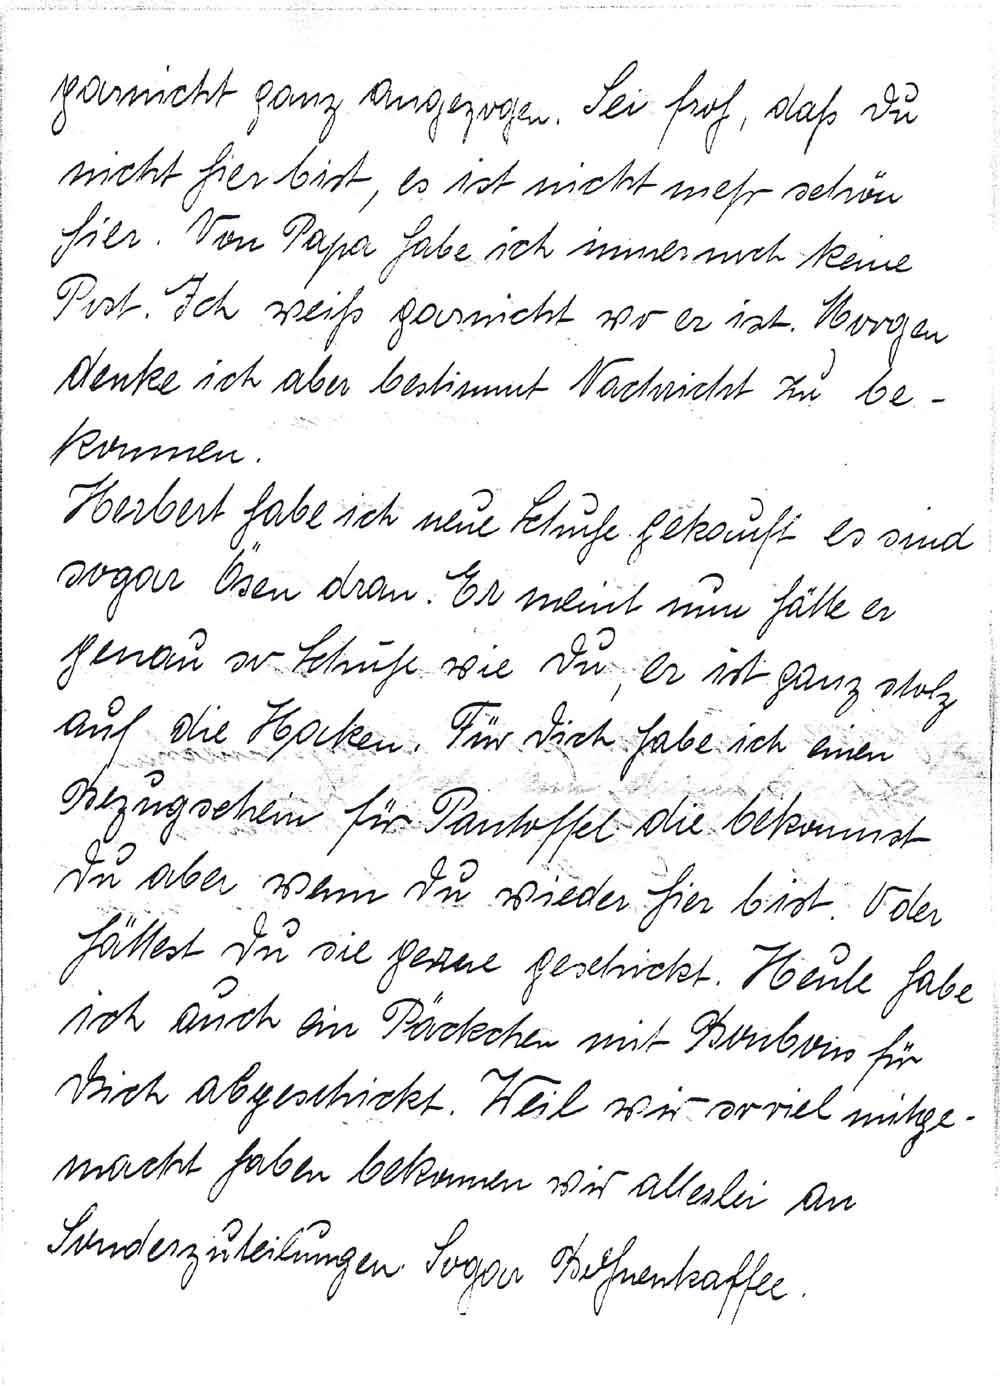 garnicht ganz angezogen. Sei froh, daß Du
nicht hier bist, es ist nicht mehr schön
hier. Von Papa habe ich immernoch keine
Post. Ich weiß garnicht wo er ist. Morgen
denke ich aber bestimmt Nachricht zu be-
kommen.
Herbert habe ich neue Schuhe gekauft es sind
sogar Ösen dran. Er meint nun hätte er
genau so Schuhe wie Du, er ist ganz stolz
auf die Hacken. Für Dich habe ich einen
Bezugschein für Pantoffel die bekommst
Du aber wenn Du wieder hier bist. Oder
hättest Du sie gerne geschickt. Heute habe
ich auch ein Päckchen mit Bonbons für
Dich abgeschickt. Weil wir soviel mitge-
macht haben bekommen wir allerlei an
Sonderzuteilungen. Sogar Bohnenkaffee.